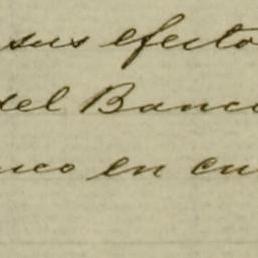 sus efecto
del Banco
nco en cu